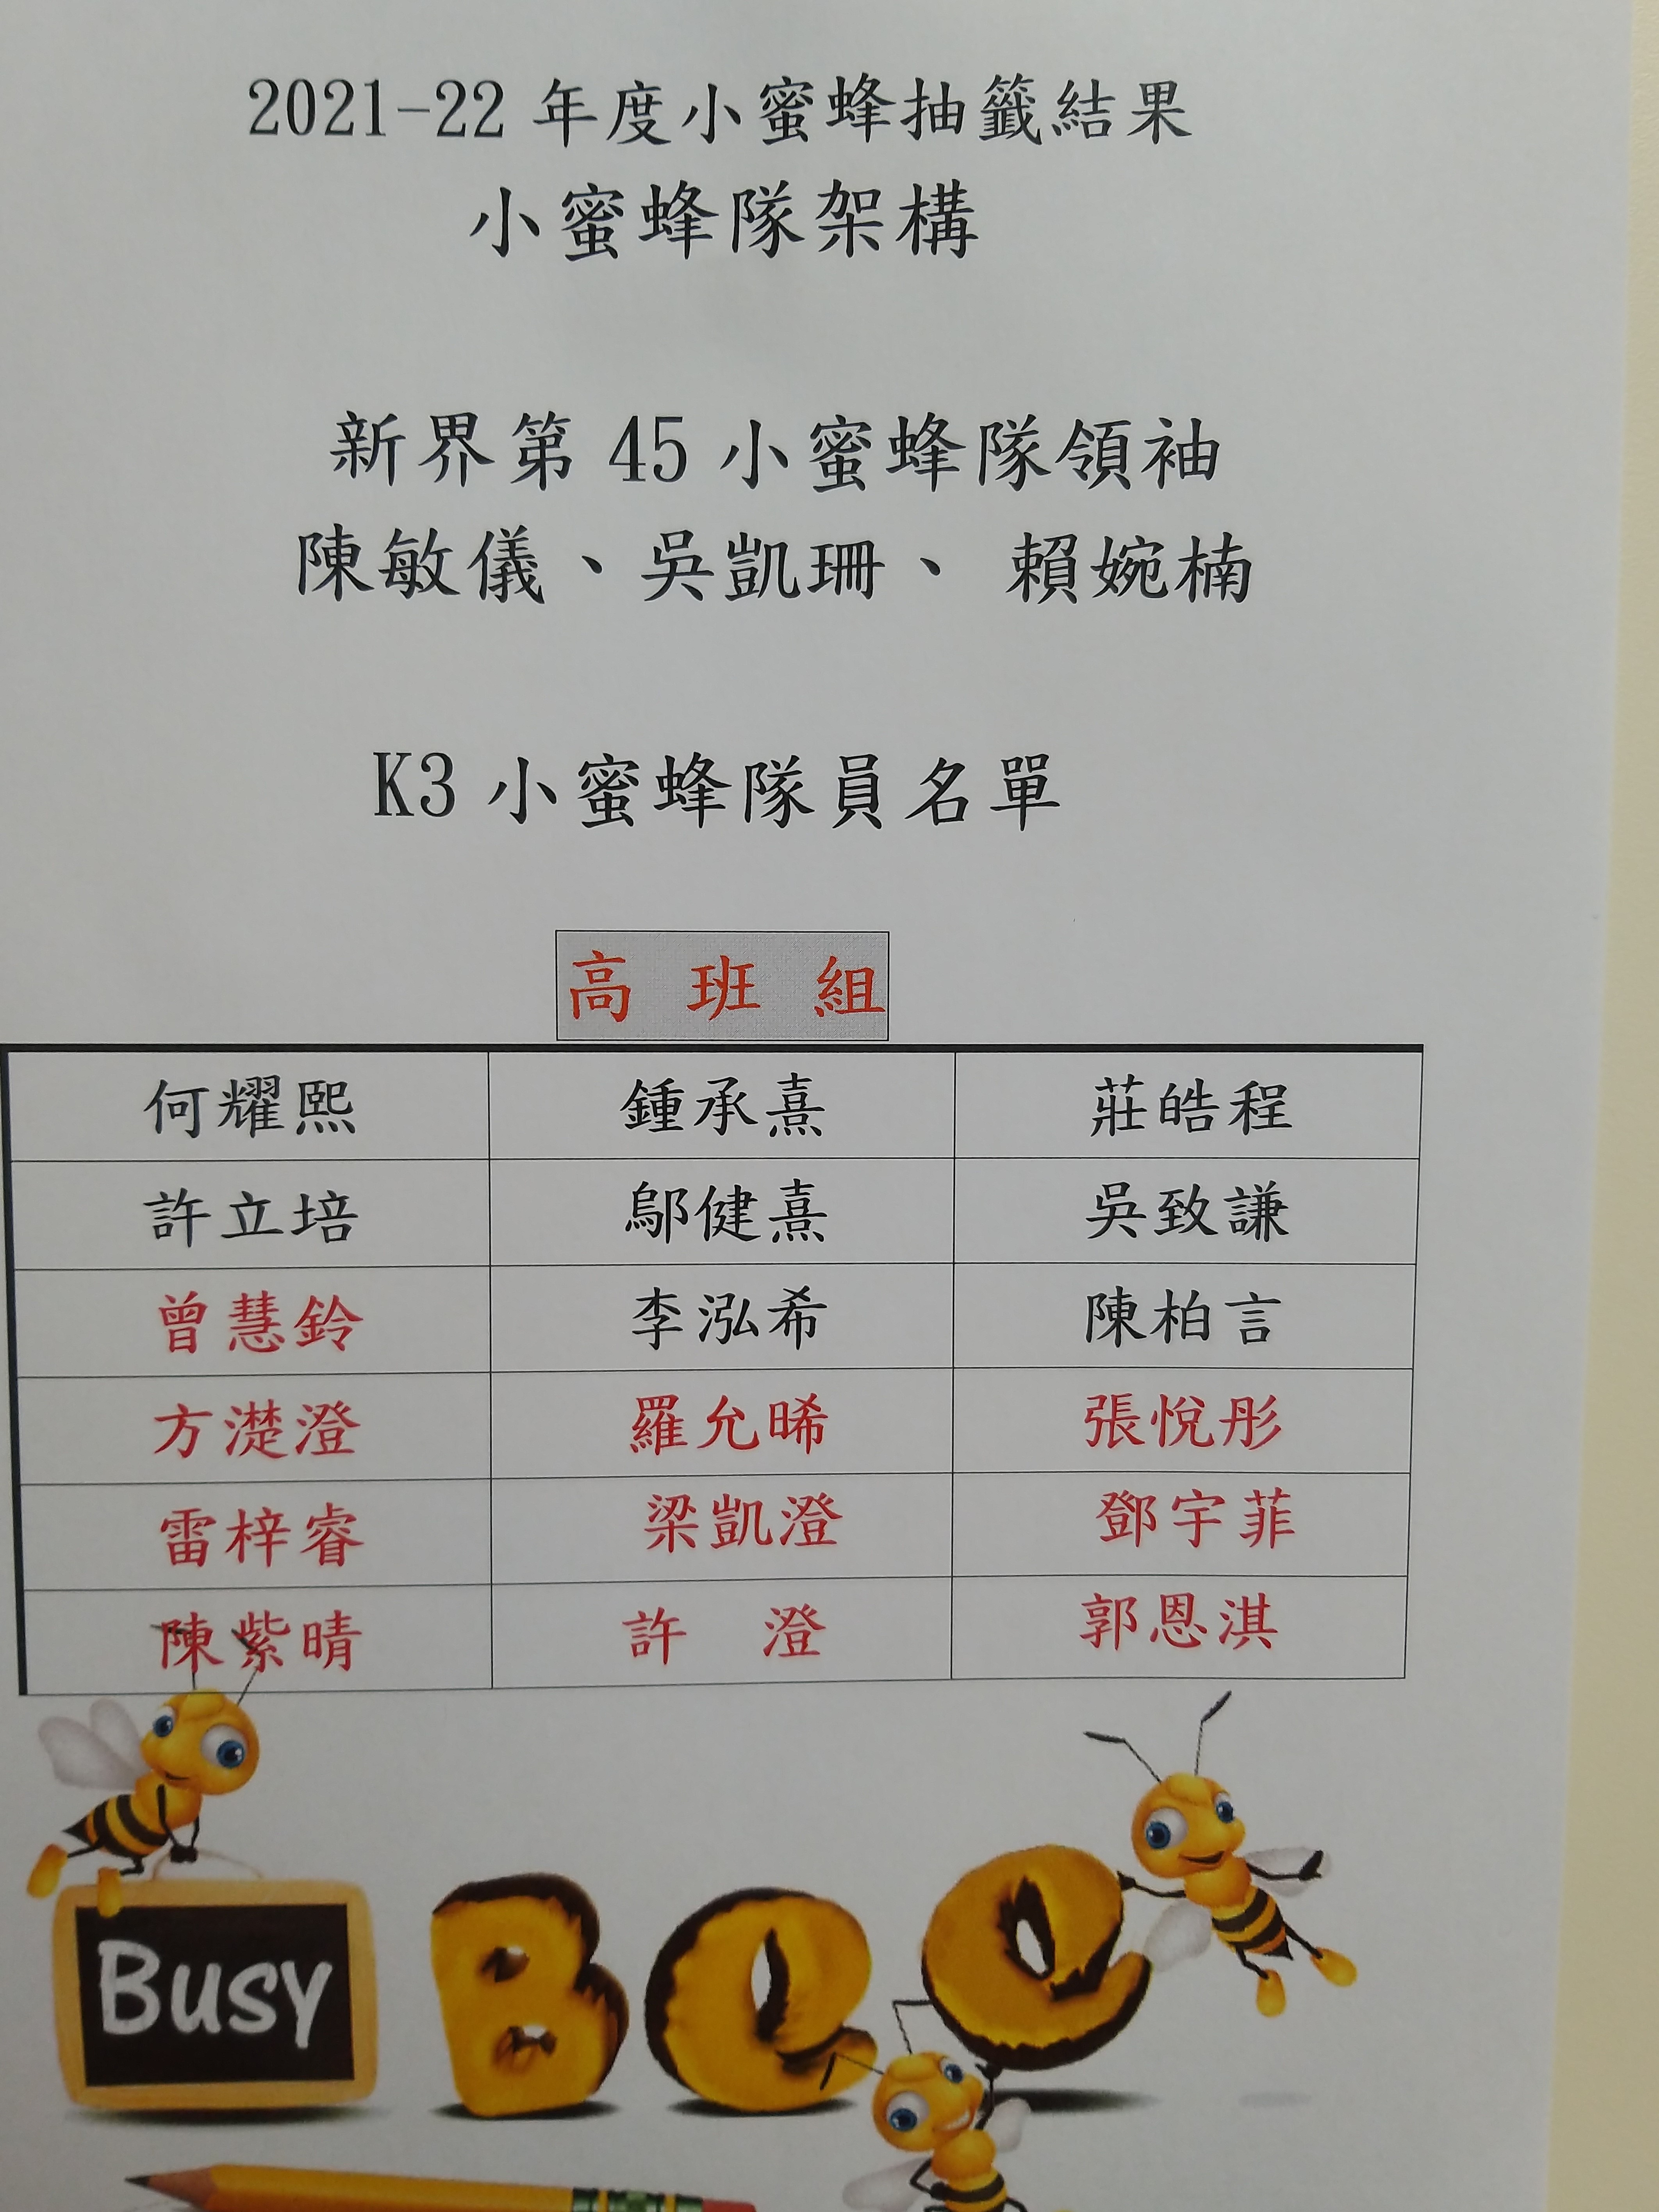 2021-22 年度小蜜蜂抽籤結果
小蜜蜂隊架構
新界第 45 小蜜蜂隊領袖
陳敏儀、吳凱珊、 賴婉楠
K3 小蜜蜂隊員名單
高 班 組
何耀熙 鍾承熹 莊皓程
許立培 鄔健熹 吳致謙
曾慧鈴 李泓希 陳柏言
方濋澄 羅允晞 張悅彤
雷梓睿 梁凱澄 鄧宇菲
陳紫晴 許 澄 郭恩淇
Busy Bee